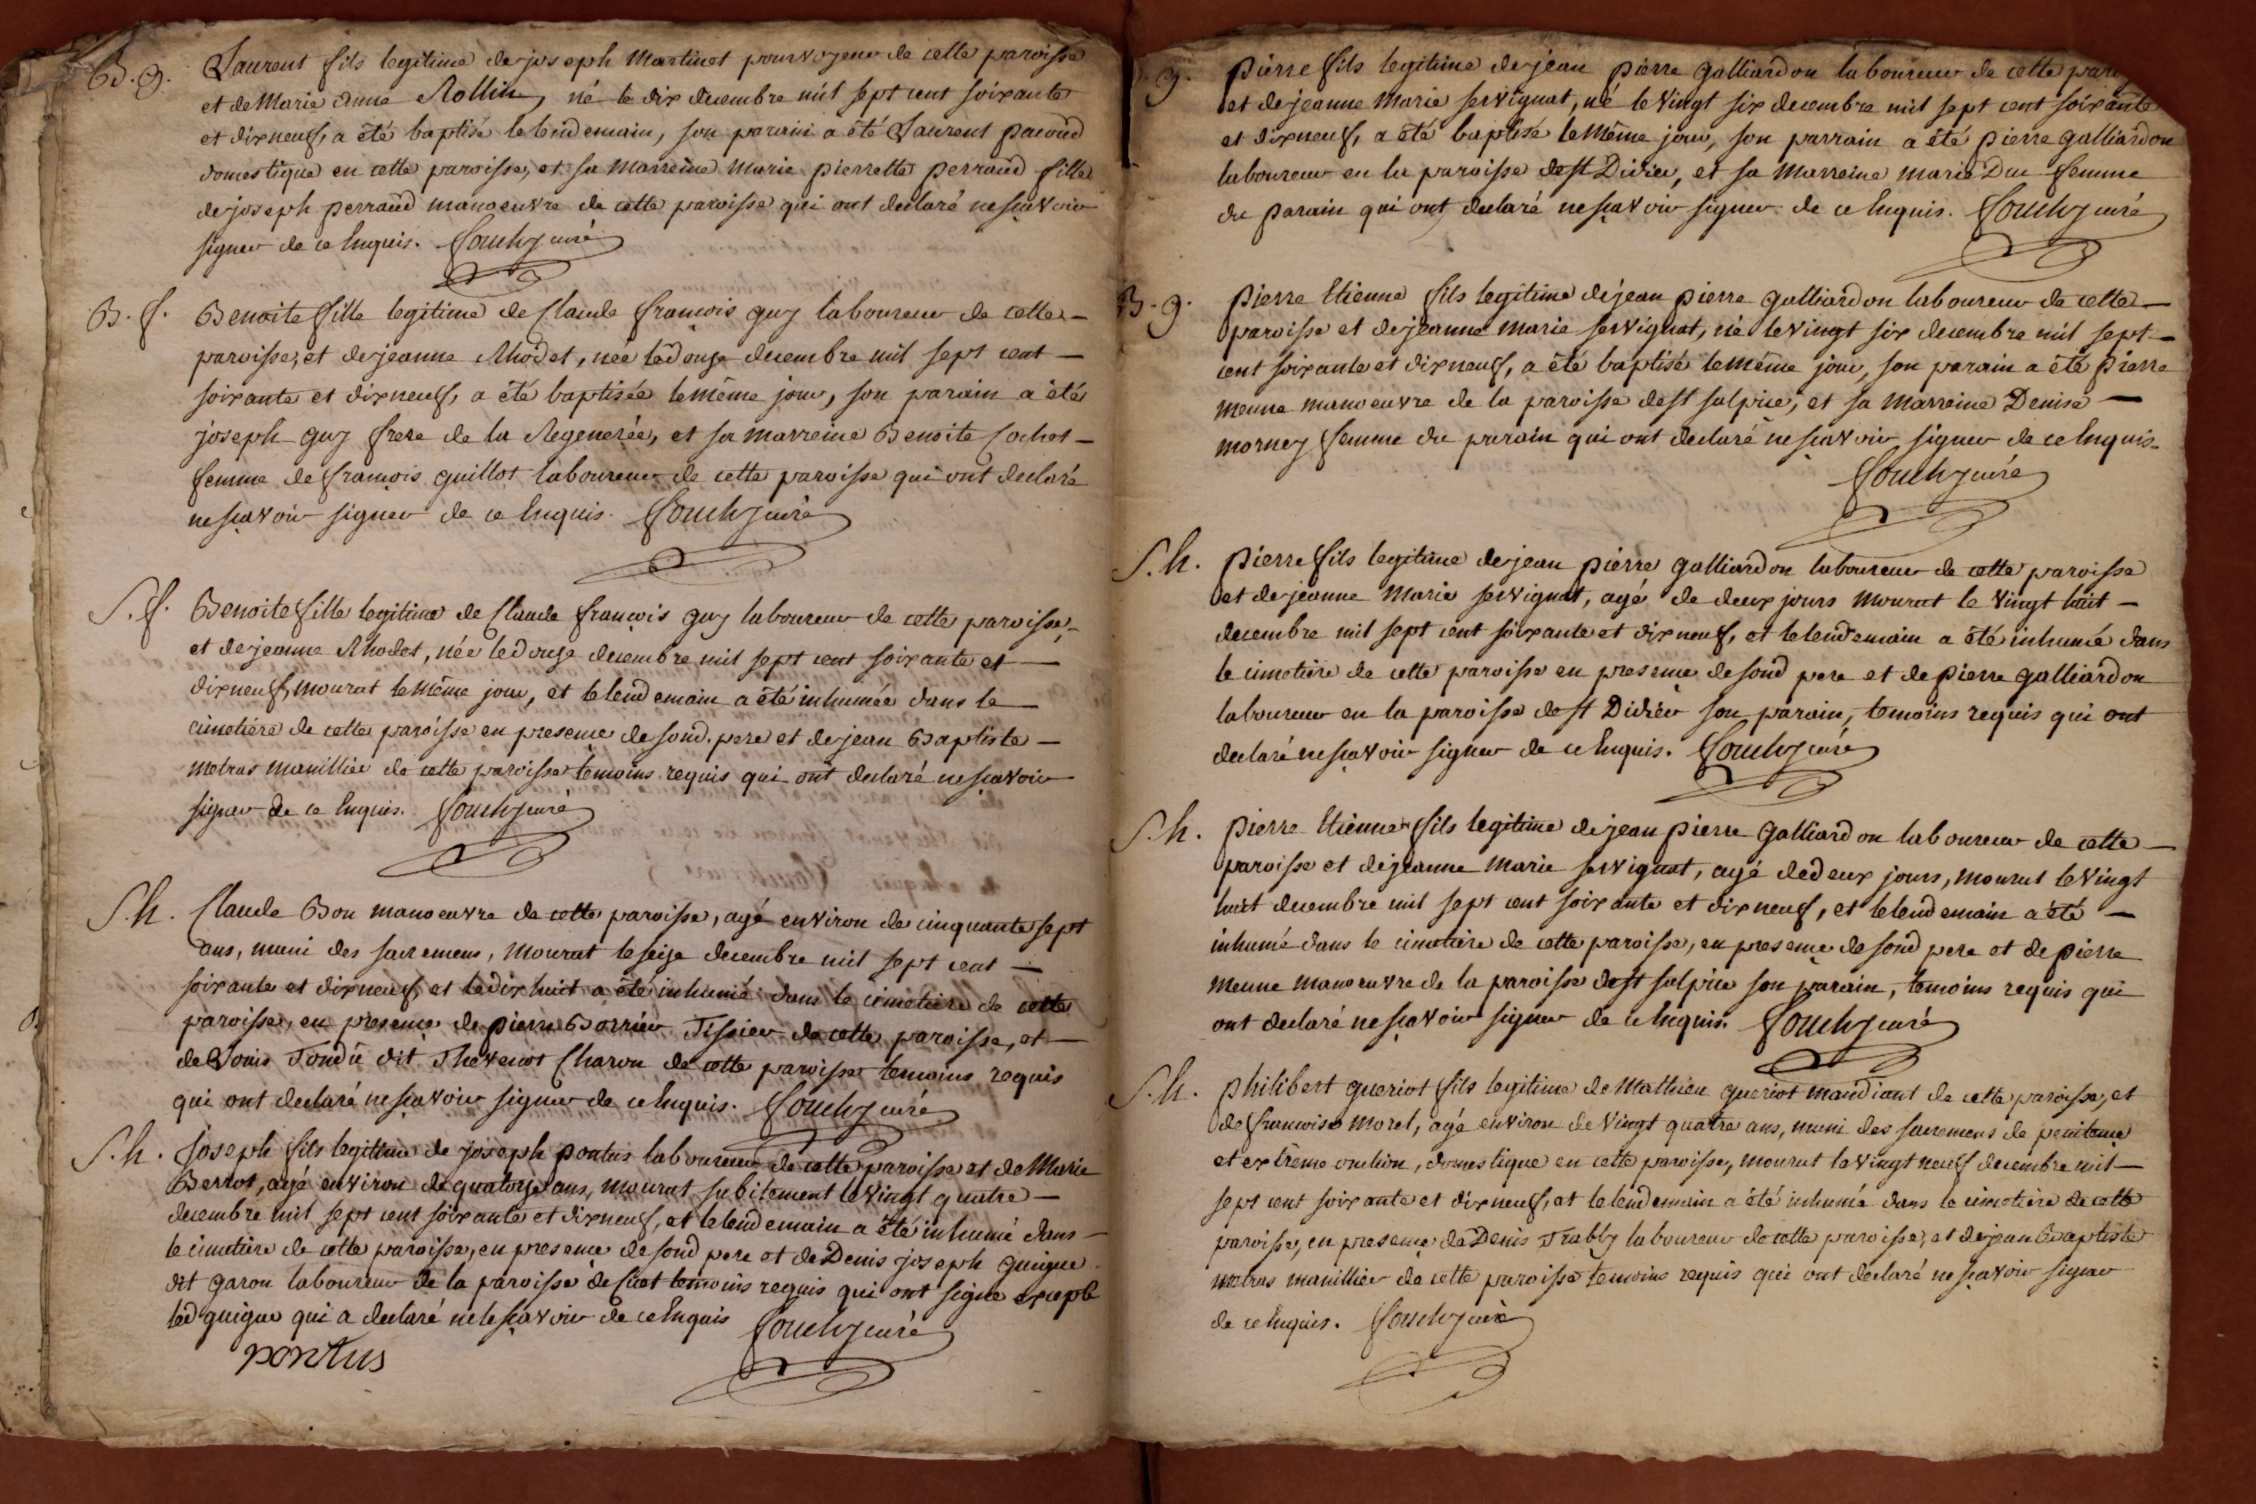 B. g. Laurent fils legitime de joseph Martinet pourvoyeur de cette paroisse
et de Marie Anne Rollin, né le dix decembre mil sept cent soixante
et dixneuf, a été baptisé le lendemain, son parain a été Laurent pacoud
domestique en cette paroisse, et sa marreine Marie pierrette perraud fille
de joseph perraud manoeuvre de cette paroisse qui ont declaré ne sçavoir
signer de ce Enquis. Couchy curé
B. f. Benoite fille legitime de Claude françois guy laboureur de cette
paroisse, et de jeanne Rhodet, née le douze decembre mil sept cent
soixante et dixneuf, a été baptisée le même jour, son parain a été
joseph guy frere de la Regenerée, et sa marreine Benoite Cochet
femme de françois guillot laboureur de cette paroisse qui ont declaré
ne sçavoir signer de ce Enquis. Couchy curé
S. f. Benoite fille legitime de Claude françois guy laboureur de cette paroisse,
et de jeanne Rhodet, née le douze decembre mil sept cent soixante et
dixneuf, mourut le même jour, et le lendemain a été inhumée dans le
cimetiere de cette paroisse en presence de sond. pere et de jean Baptiste
metras manillier de cette paroisse temoins requis qui ont declaré ne sçavoir
signer de ce Enquis. Couchy curé
S. h. Claude Bon manoeuvre de cette paroisse, agé environ de cinquante sept
ans, muni des sacremens, mourut le seize decembre mil sept cent
soixante et dixneuf, et le dix huit a été inhumé dans le cimetiere de cette
paroisse, en presence de pierre Borrier Tissier de cette paroisse, et
de Louis Tondu dit Thevenot Charon de cette paroisse temoins requis
qui ont declaré ne sçavoir signer de ce Enquis. Couchy curé
S. h. Joseph fils legitime de joseph pontus laboureur de cette paroisse et de Marie
Berrot, agé environ de quatorze ans, mourut subitement le vingt quatre
decembre mil sept cent soixante et dixneuf, et le lendemain a été inhumé dans
le cimetiere de cette paroisse, en presence de sond pere et de Denis joseph guigue
dit garon laboureur de la paroisse de temoins requis qui ont signé excepte
led guigue qui a declaré ne le sçavoir de ce Enquis Couchy curé
pontus
g. pierre fils legitime de jean pierre galliardon laboureur de cette
et de jeanne Marie servignat, né le vingt six decembre mil sept cent soixante
et dixneuf, a été baptisé le même jour, son parrain a été pierre galliardon
laboureur en la paroisse de st Didier, et sa marreine marie Duc femme
du parain qui ont declaré ne sçavoir signer de ce Enquis. Couchy curé
B. g. pierre Etienne fils legitime de jean pierre galliardon laboureur de cette
paroisse et de jeanne Marie servignat, né le vingt six decembre mil sept
cent soixante et dixneuf, a été baptisé le même jour, son parain a été pierre
meune manoeuvre de la paroisse de st sulpice, et sa marreine Denise
morney femme du parain qui ont declaré ne sçavoir signer de ce Enquis.
Couchy curé
S. h. pierre fils legitime de jean pierre galliardon laboureur de cette paroisse
et de jeanne Marie servignat, agé de deux jours mourut le vingt huit
decembre mil sept cent soixante et dixneuf, et le lendemain a été inhumé dans
le cimetiere de cette paroisse en presence de sond pere et de pierre galliardon
laboureur en la paroisse de st Didier son parain, temoins requis qui ont
declaré ne sçavoir signer de ce Enquis. Couchy curé
S. h. pierre Etienne fils legitime de jean pierre galliardon laboureur de cette
paroisse et de jeanne Marie servignat, agé de deux jours, mourut le vingt
huit decembre mil sept cent soixante et dixneuf, et le lendemain a été
inhumé dans le cimetiere de cette paroisse, en presence de sond pere et de pierre
meune manoeuvre de la paroisse de st sulpice son parain, temoins requis qui
ont declaré ne sçavoir signer de ce Enquis. Couchy curé
S. h. philibert gueriot fils legitime de Mathieu gueriot mandiant de cette paroisse, et
de françoise Morel, agé environ de vingt quatre ans, muni des sacremens de penitence
et extrême onction, domestique en cette paroisse, mourut le vingt neuf decembre mil
sept cent soixante et dixneuf, et le lendemain a été inhumé dans le cimetiere de cette
paroisse, en presence de Denis laboureur de cette paroisse, et de jean Baptiste
metras manillier de cette paroisse temoins requis qui ont declaré ne sçavoir signer
de ce Enquis. Couchy curé